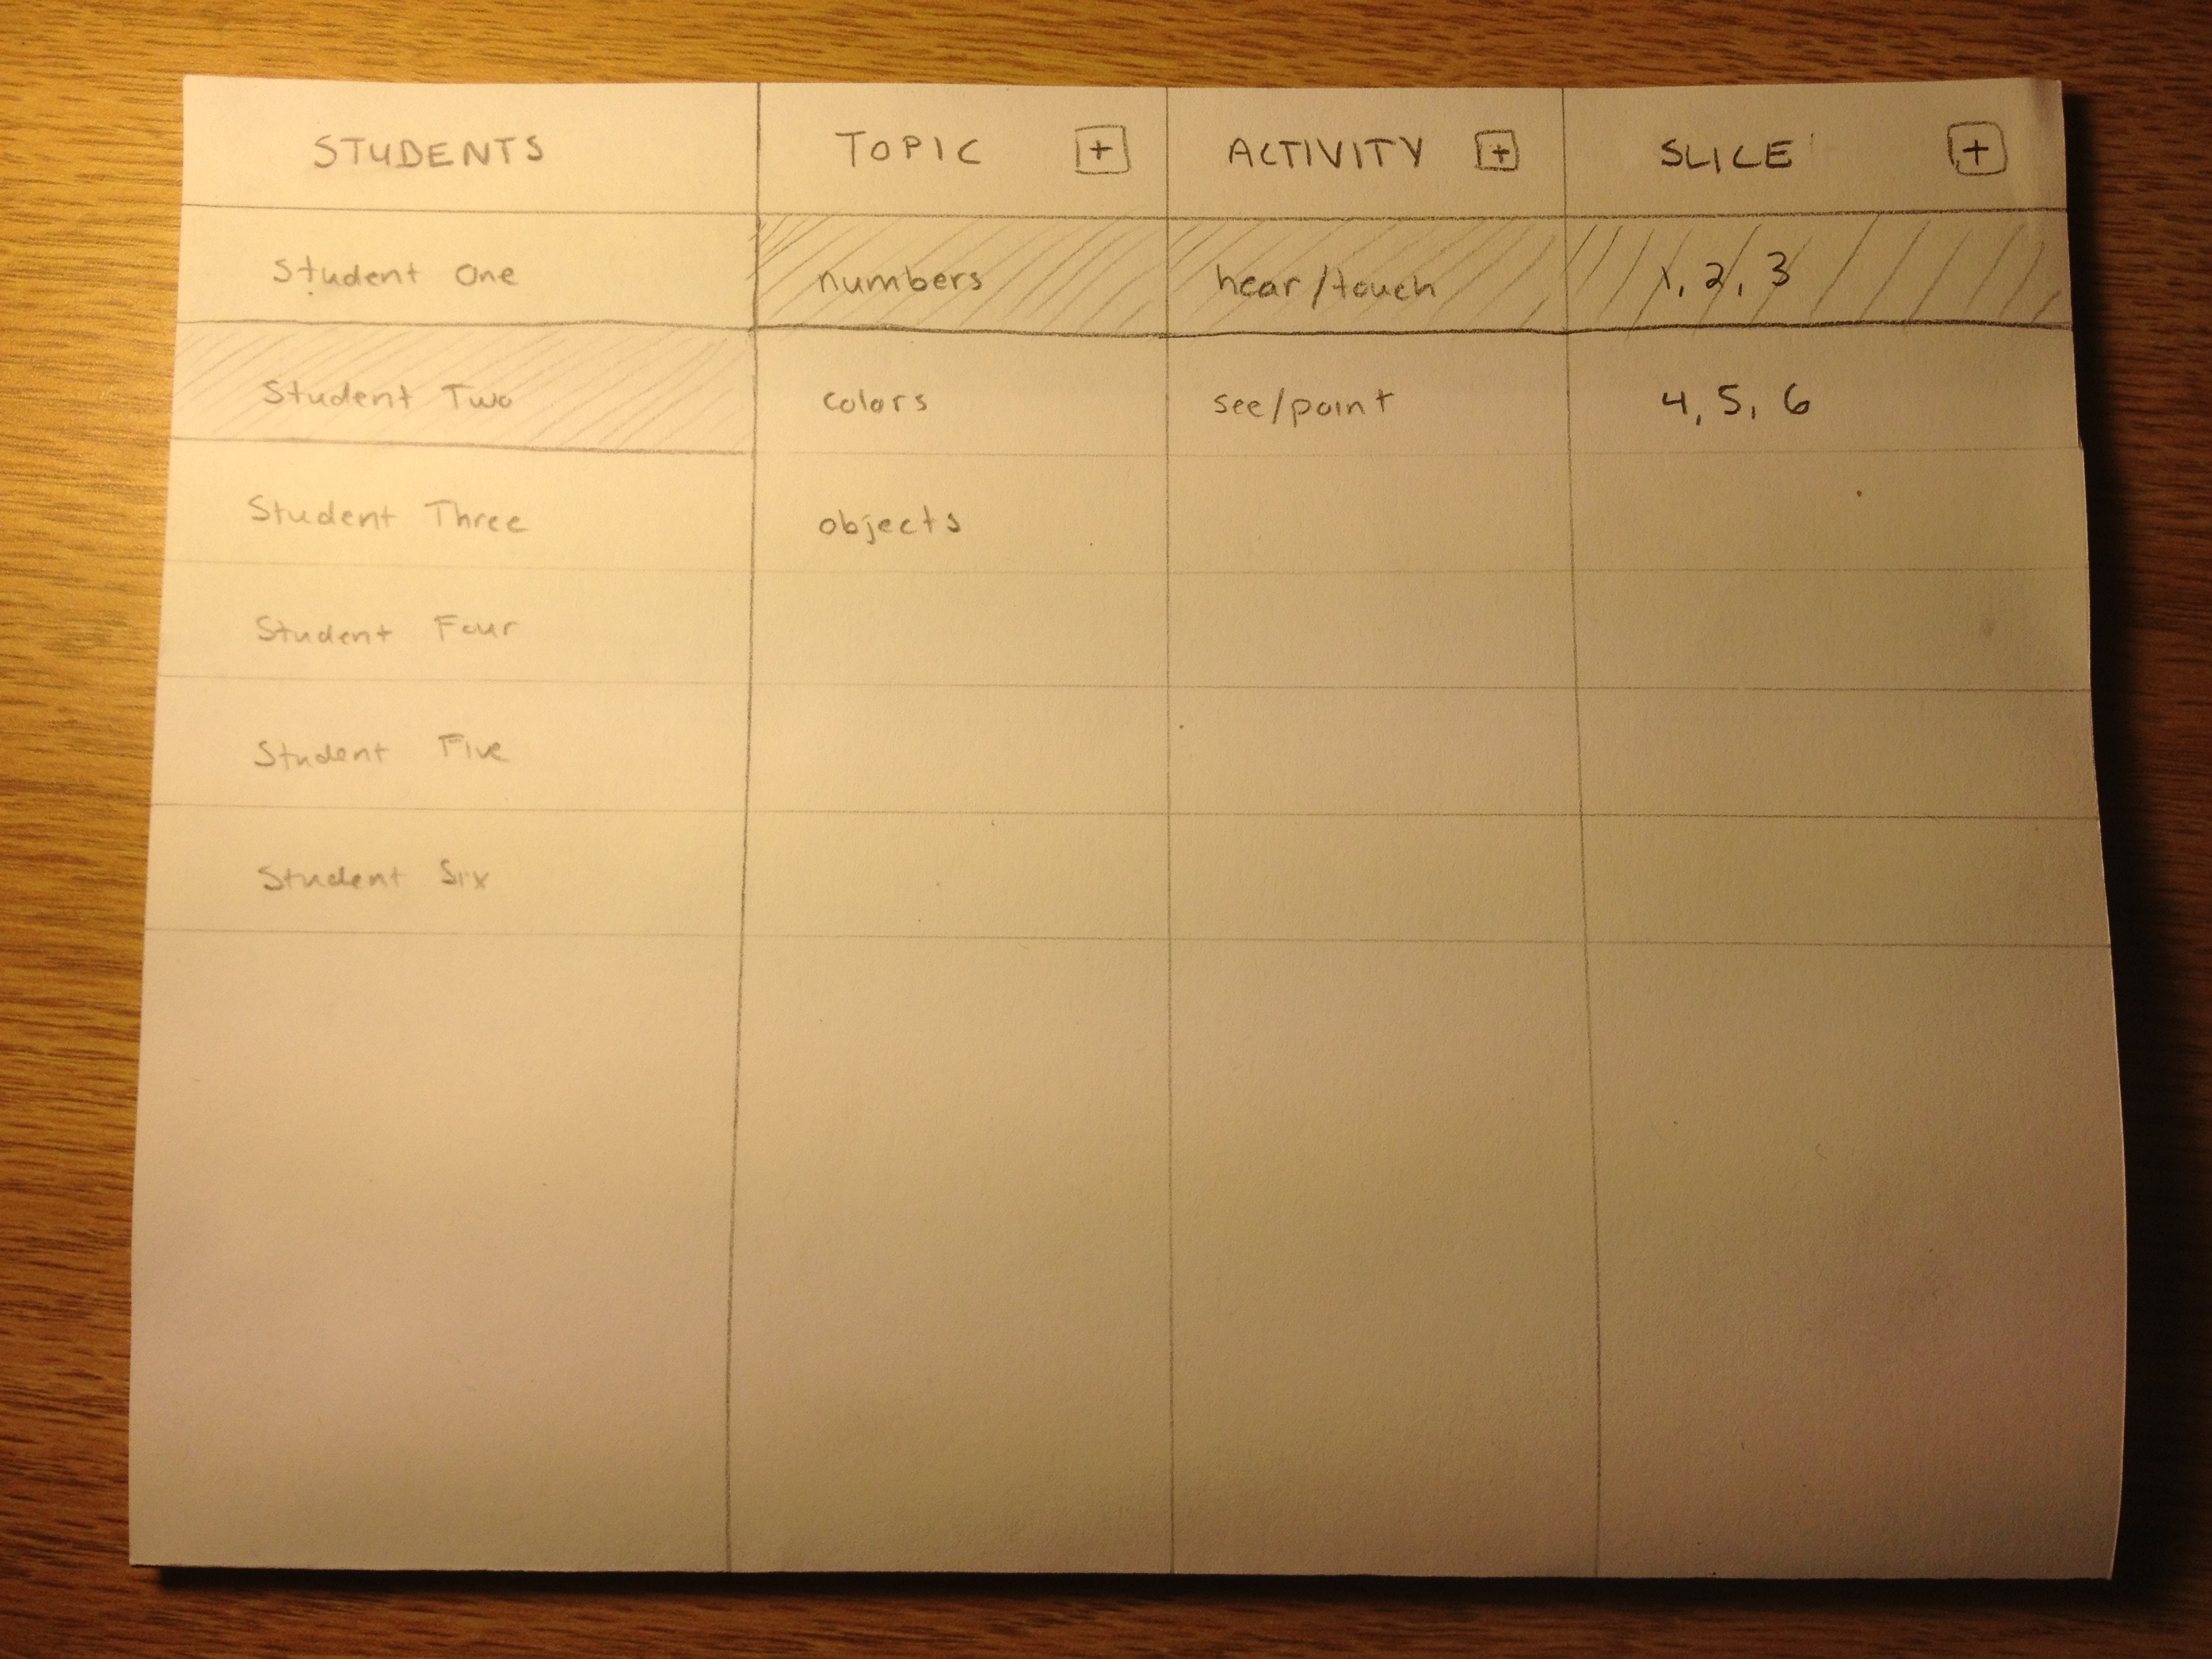 STUDENTS TOPIC + ACTIVITY + SLICE +
Student One numbers hear/touch 1, 2, 3
Student Two colors see/point 4, 5, 6
Student Three objects
Student Four
Student Five
Student Six